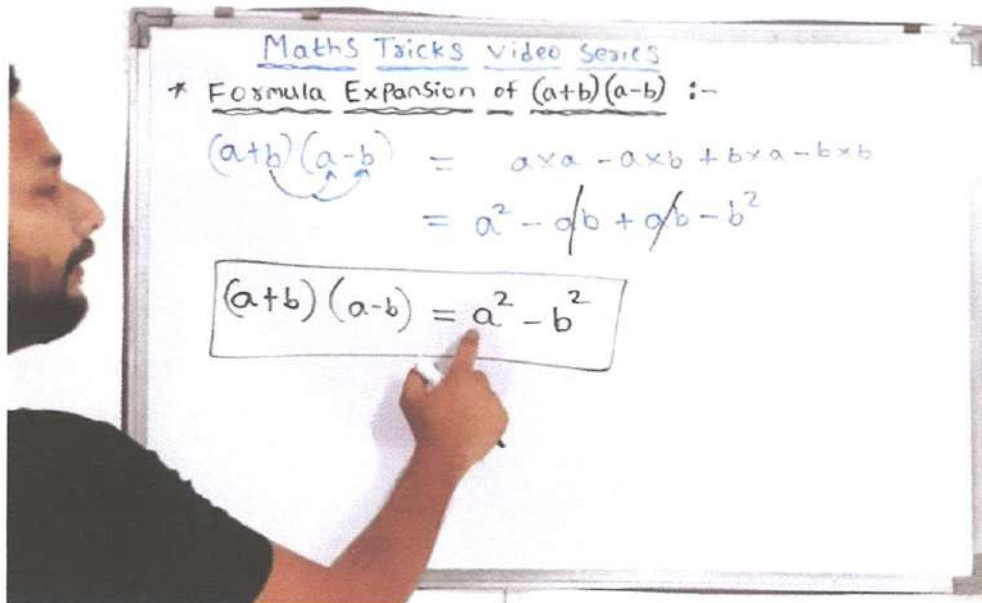 Maths Tricks Video Series
* Formula Expansion of (a+b)(a-b) :-
(a+b)(a-b) = a×a - a×b + b×a - b×b
= a² - ab + ab - b²
(a+b) (a-b) = a² - b²